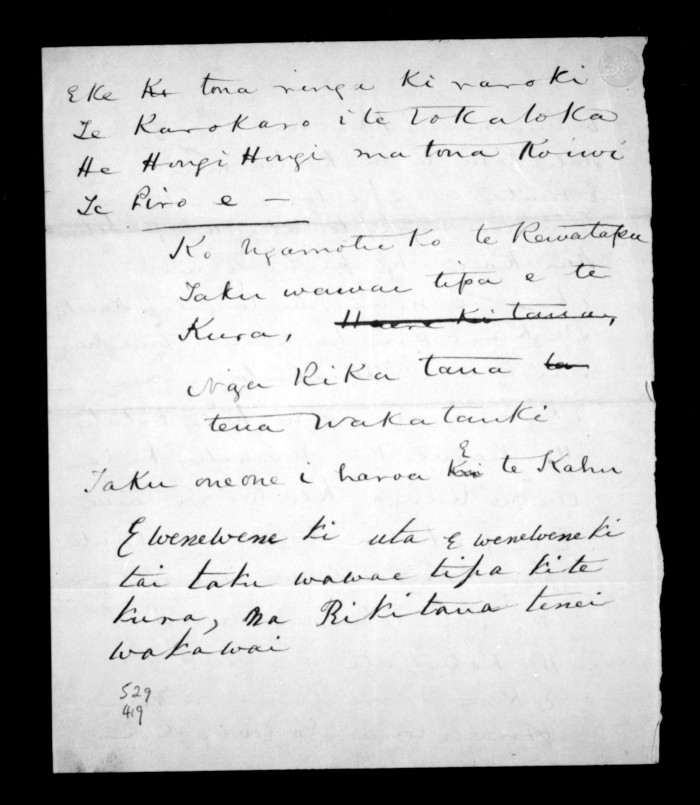 Eke Ko tona ringa ki raro ki
Te Karokaro i te Tokatoka
He Hongi Hongi ma tona Koiwi
Te Piro e —
Ko Ngamotu Ko te Rewatapu
Taku wawae tipa e te
Kura, Haere ki taua,
Nga Rika taua ta
tena Wakatauki
Taku oneone i haroa Kei E te Kahu
E wenewene ki uta E wenewene ki
tai taku wawae tipa ki te
kura, na Rikitaua tenei
wakawai
529
419